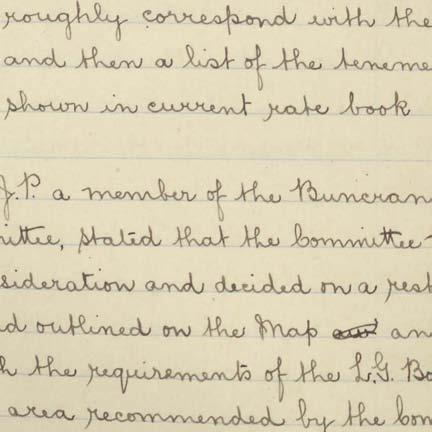 roughly correspond with the
and then a list of the teneme
shown in current rate book
J.P. a member of the Buncran
ittee, stated that the Committee
sideration and decided on a rest
d outlined on the Map an
h the requirements of the L.G. Bo
area recommended by the Com